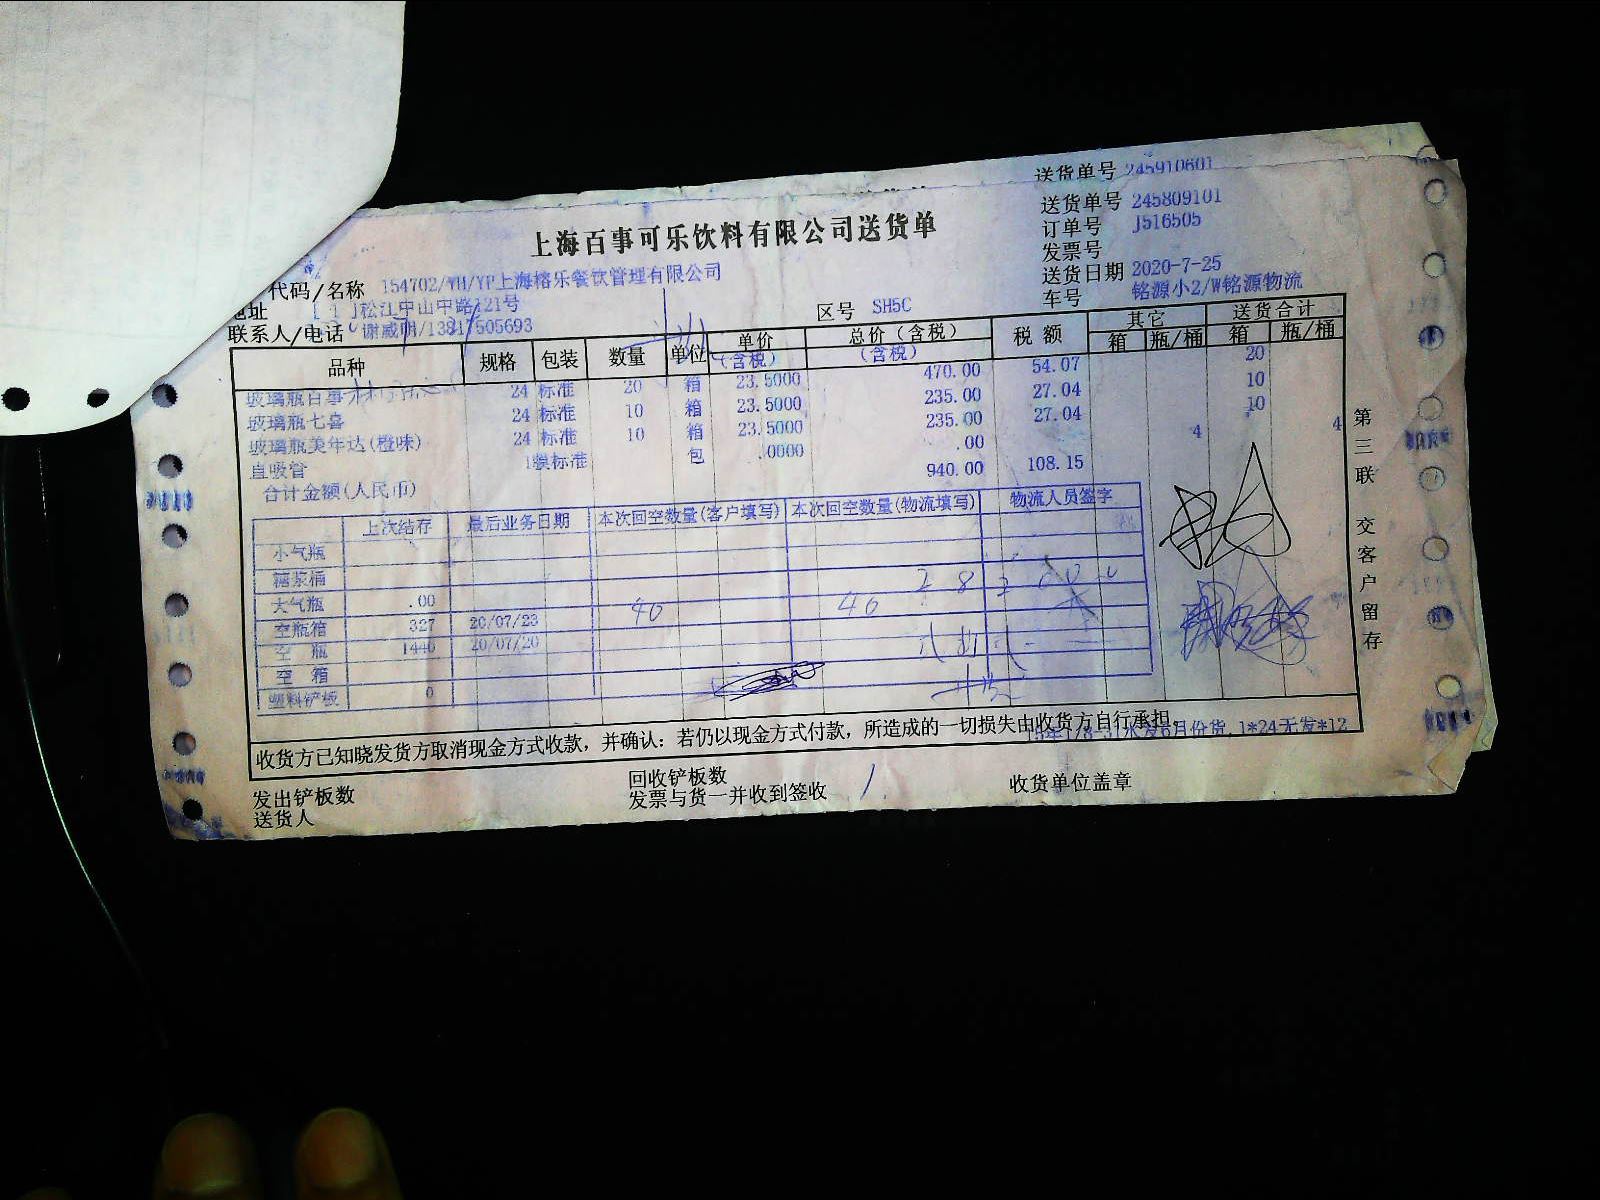 送货单号 245910601
上海百事可乐饮料有限公司送货单
送货单号 245809101
订单号 J516505
发票号
送货日期 2020-7-25
车号 铭源小2/W铭源物流
代码/名称 154702/YH/YP上海榕乐餐饮管理有限公司
地址 [ 1 ]松江中山中路121号
区号 SH5C
联系人/电话 谢威明/13817505693
品种 规格 包装 数量 单位 单价(含税) 总价(含税) 税额 其它 送货合计
(含税) 箱 瓶/桶 箱 瓶/桶
玻璃瓶百事 24 标准 20 箱 23.5000 470.00 54.07 20
玻璃瓶七喜 24 标准 10 箱 23.5000 235.00 27.04 10
玻璃瓶美年达(橙味) 24 标准 10 箱 23.5000 235.00 27.04 10
自吸管 标准 包 .0000 .00 4 4
合计金额(人民币) 940.00 108.15
上次结存 最后业务日期 本次回空数量(客户填写) 本次回空数量(物流填写) 物流人员签字
小气瓶
糖浆桶
大气瓶 .00
空瓶箱 327 20/07/23 40 40
空 瓶 1440 20/07/20
空 箱
塑料铲板 0
收货方已知晓发货方取消现金方式收款，并确认：若仍以现金方式付款，所造成的一切损失由收货方自行承担。
6月份货，1*24无发*12
发出铲板数 回收铲板数 收货单位盖章
送货人 发票与货一并收到签收
第三联 交客户留存